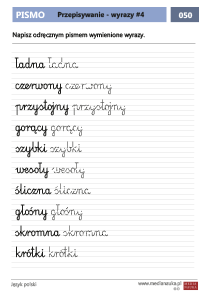 PISMO Przepisywanie - wyrazy #4 050
Napisz odręcznym pismem wymienione wyrazy.
ładna ładna
czerwony czerwony
przystojny przystojny
gorący gorący
szybki szybki
wesoły wesoły
śliczna śliczna
głośny głośny
skromna skromna
krótki krótki
Język polski www.medianauka.pl